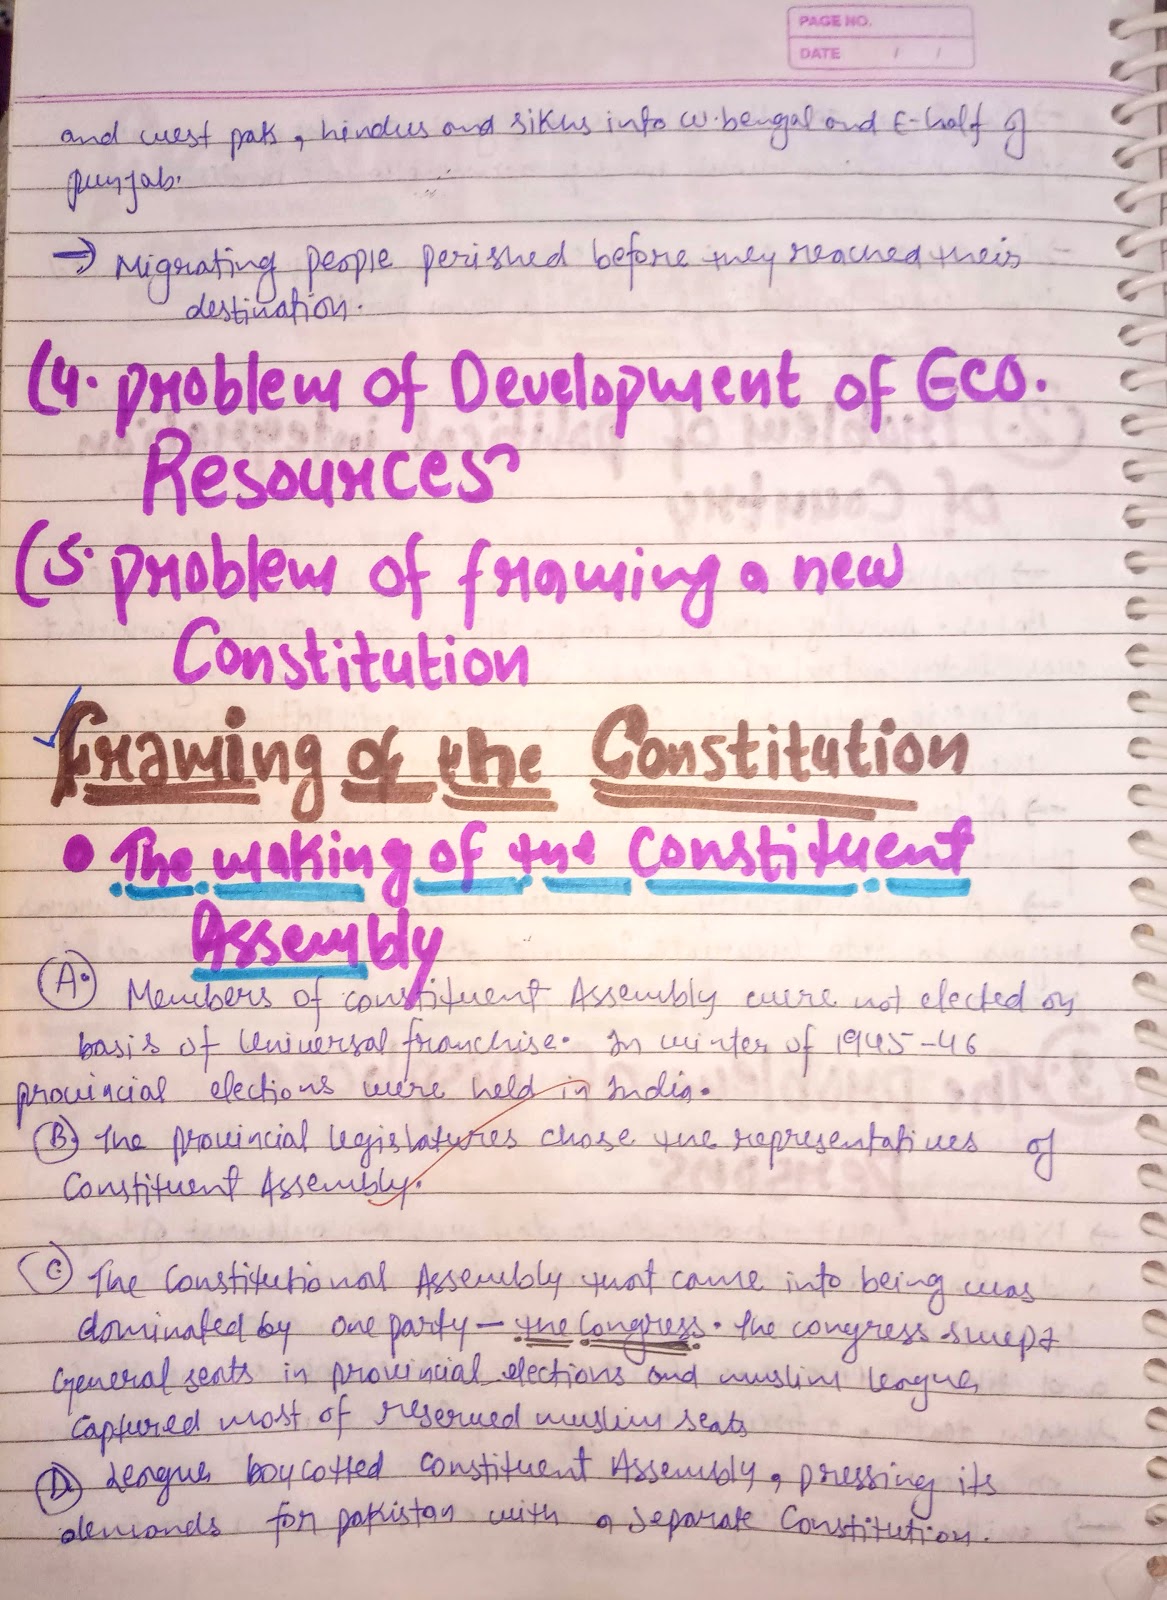 PAGE NO.
DATE / /
and west pak, hindus and sikhs into w.bengal and E-half of
punjab.
→ Migrating people perished before they reached their
destination.
(4. problem of Development of Eco.
Resources
(5. problem of framing a new
Constitution
Framing of the Constitution
• The making of the Constituent
Assembly
A. Members of constituent Assembly were not elected on
basis of Universal franchise. In winter of 1945-46
provincial elections were held in India.
B. The provincial legislatures chose the representatives of
Constituent Assembly.
C. The Constitutional Assembly that came into being was
dominated by one party - the Congress. The congress swept
General seats in provincial elections and muslim league
captured most of reserved muslim seats
D. League boycotted constituent Assembly, pressing its
demands for pakistan with a separate Constitution.